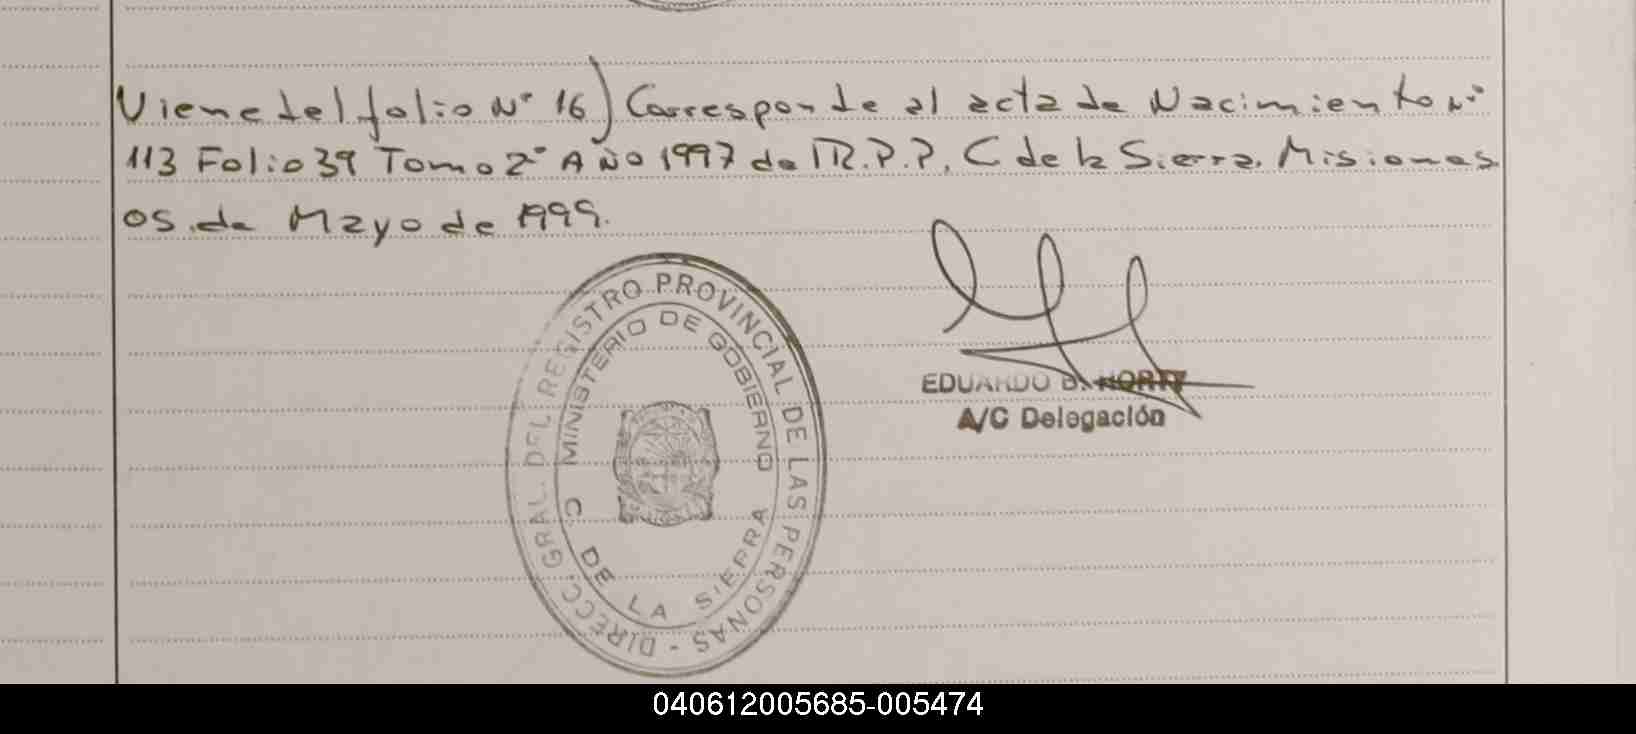 Viene del folio N° 16) Corresponde al acta de Nacimiento N°
113 Folio 39 Tomo 2° AÑO 1997 de R.P.P. C de la Sierra. Misiones
05 de Mayo de 1999.
DIRECC. GRAL. DEL REGISTRO PROVINCIAL DE LAS PERSONAS -
MINISTERIO DE GOBIERNO
C. DE LA SIERRA
EDUARDO B.
A/C Delegación
040612005685-005474